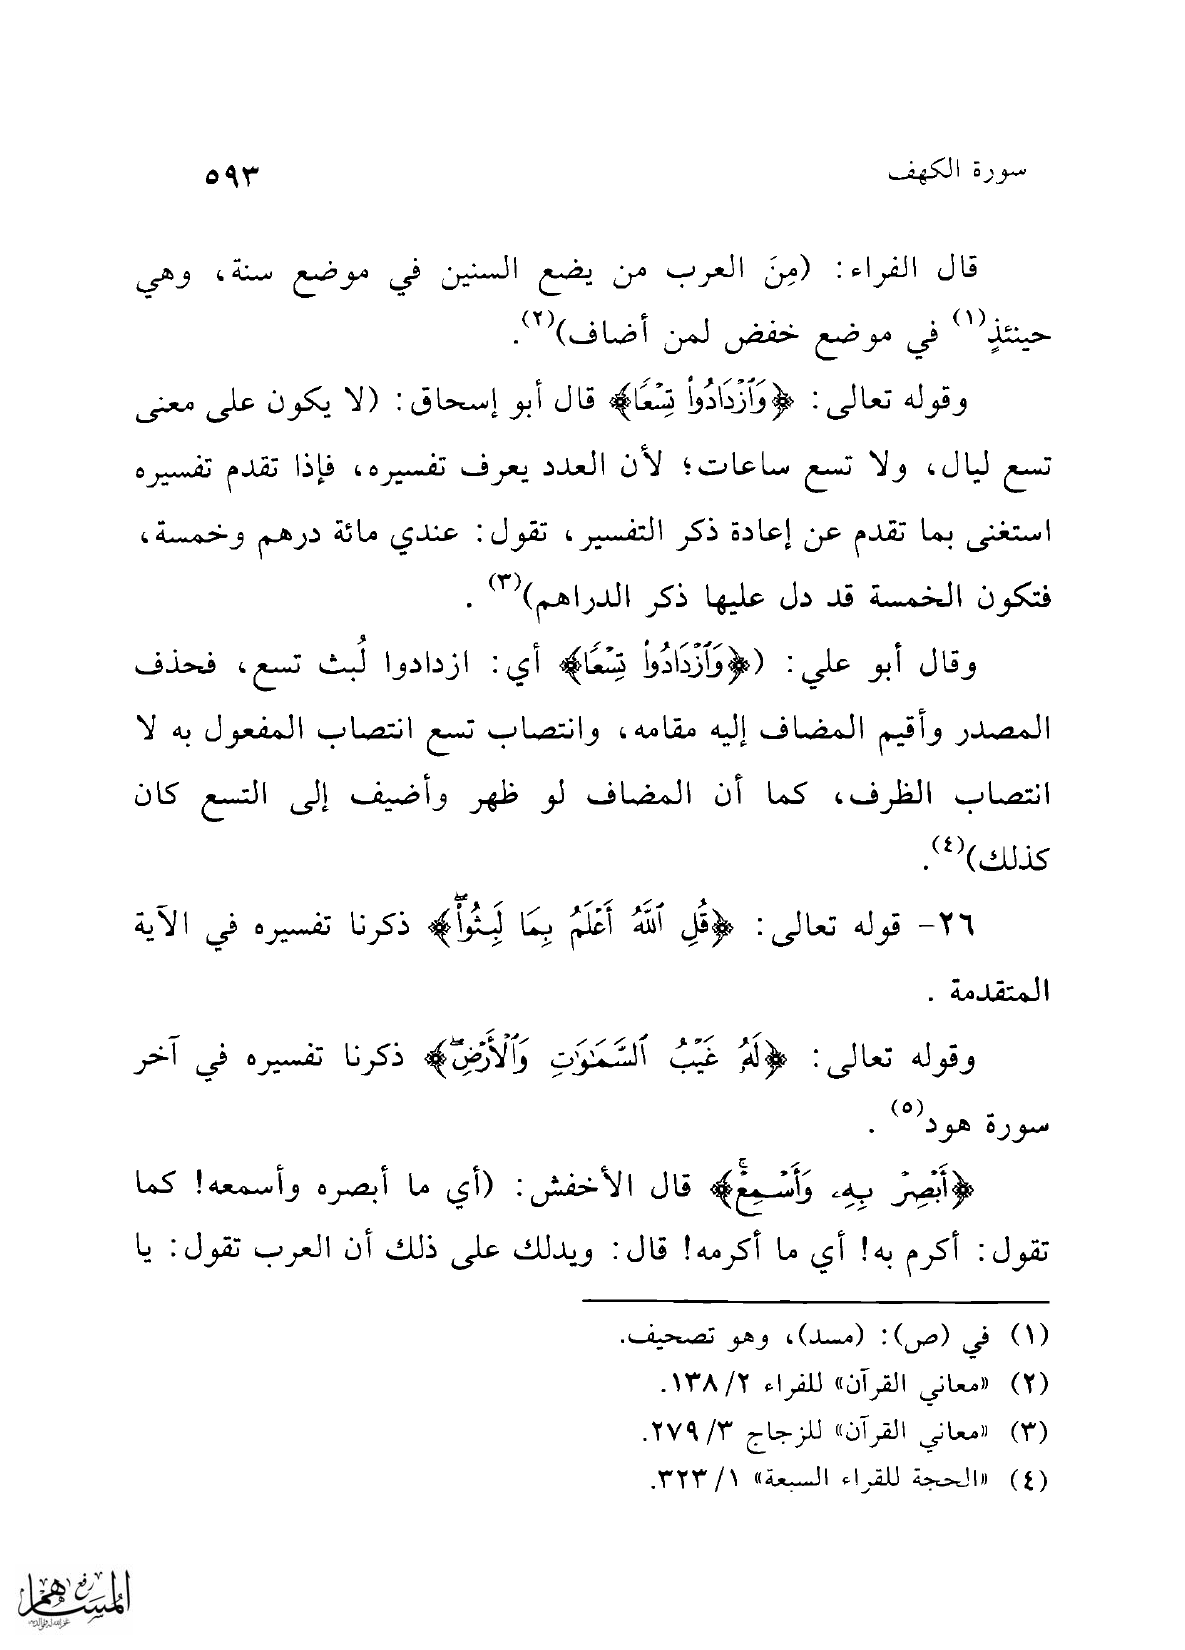 سورة الكهف ٥٩٣
قال الفراء: (مِنَ العرب من يضع السنين في موضع سنة، وهي
حينئذٍ(١) في موضع خفض لمن أضاف)(٢).
وقوله تعالى: ﴿وَٱزْدَادُوا۟ تِسْعًا﴾ قال أبو إسحاق: (لا يكون على معنى
تسع ليال، ولا تسع ساعات؛ لأن العدد يعرف تفسيره، فإذا تقدم تفسيره
استغنى بما تقدم عن إعادة ذكر التفسير، تقول: عندي مائة درهم وخمسة،
فتكون الخمسة قد دل عليها ذكر الدراهم)(٣) .
وقال أبو علي: (﴿وَٱزْدَادُوا۟ تِسْعًا﴾ أي: ازدادوا لُبث تسع، فحذف
المصدر وأقيم المضاف إليه مقامه، وانتصاب تسع انتصاب المفعول به لا
انتصاب الظرف، كما أن المضاف لو ظهر وأضيف إلى التسع كان
كذلك)(٤).
٢٦- قوله تعالى: ﴿قُلِ ٱللَّهُ أَعْلَمُ بِمَا لَبِثُوا۟ۖ﴾ ذكرنا تفسيره في الآية
المتقدمة .
وقوله تعالى: ﴿لَهُۥ غَيْبُ ٱلسَّمَٰوَٰتِ وَٱلْأَرْضِۖ﴾ ذكرنا تفسيره في آخر
سورة هود(٥) .
﴿أَبْصِرْ بِهِۦ وَأَسْمِعْۚ﴾ قال الأخفش: (أي ما أبصره وأسمعه! كما
تقول: أكرم به! أي ما أكرمه! قال: ويدلك على ذلك أن العرب تقول: يا
(١) في (ص): (مسد)، وهو تصحيف.
(٢) «معاني القرآن» للفراء ٢/ ١٣٨.
(٣) «معاني القرآن» للزجاج ٣/ ٢٧٩.
(٤) «الحجة للقراء السبعة» ١/ ٣٢٣.